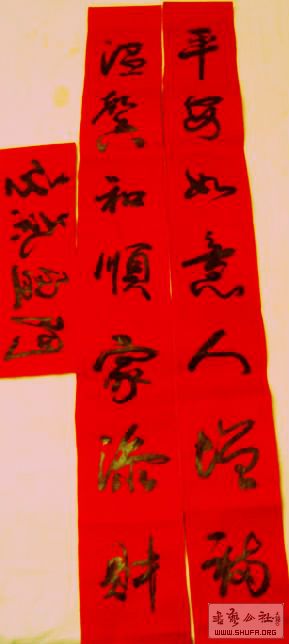 平安如意人增福
温馨和順家添財
喜氣盈門
书艺公社
WWW.SHUFA.ORG